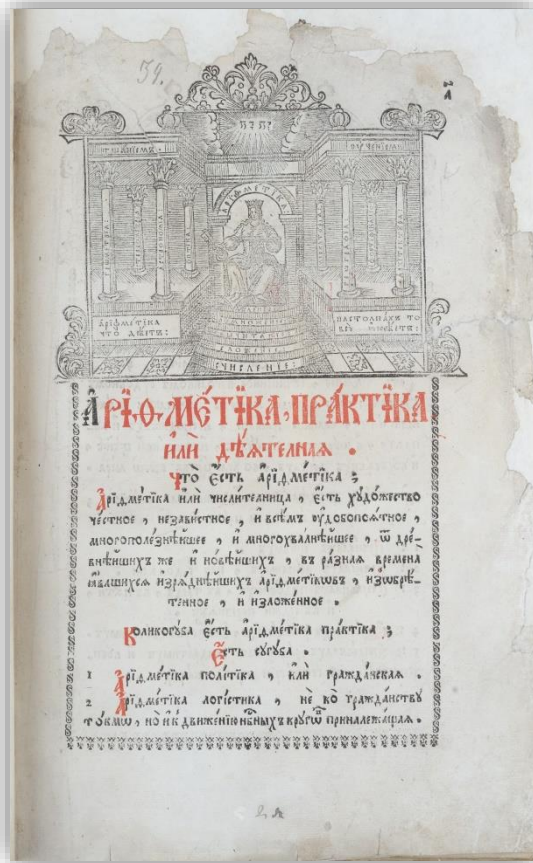 54.
тщанїемъ
ѹченїемъ
АРІѲМЕТІКА
арїѳметїка
что дѣетъ:
на столпахъ то
всѐ имѣетъ:
счисленїе
А҆РІ҆Ѳ҆МЕ́ТЇКА, ПРА́КТЇКА
и҆лѝ дѣ́ѧтелнаѧ .
Что̀ є҆́сть а҆рїѳме́тїка ;
А҆рїѳме́тїка и҆лѝ числи́телница , є҆́сть хꙋдо́жество
че́стное , неза́вистное , и҆ всѣ̑мъ ᲂу҆добопоѧ́тное ,
многополе́знѣйшее , и҆ многохва́лнѣйшее , ѿ дре́-
внѣйшихъ же и҆ новѣ́йшихъ , въ ра́знаѧ времена̀
ꙗ҆ви́вшихсѧ и҆зрѧ́днѣйшихъ а҆рїѳме́тїкѡвъ , и҆з̾ѡбрѣ́-
тенное , и҆ и҆зложе́нное .
Коликогꙋ́ба є҆́сть а҆рїѳме́тїка пра́ктїка ;
Є҆́сть сꙋгꙋ́ба .
1 А҆рїѳме́тїка поли́тїка , и҆лѝ гражда́нскаѧ .
2 А҆рїѳме́тїка логі́стика , не ко гражда́нствꙋ
то́кмѡ , но и҆ к̾ движе́нїю нб҃ныхъ крꙋгѡ́въ принадлежа́щаѧ .